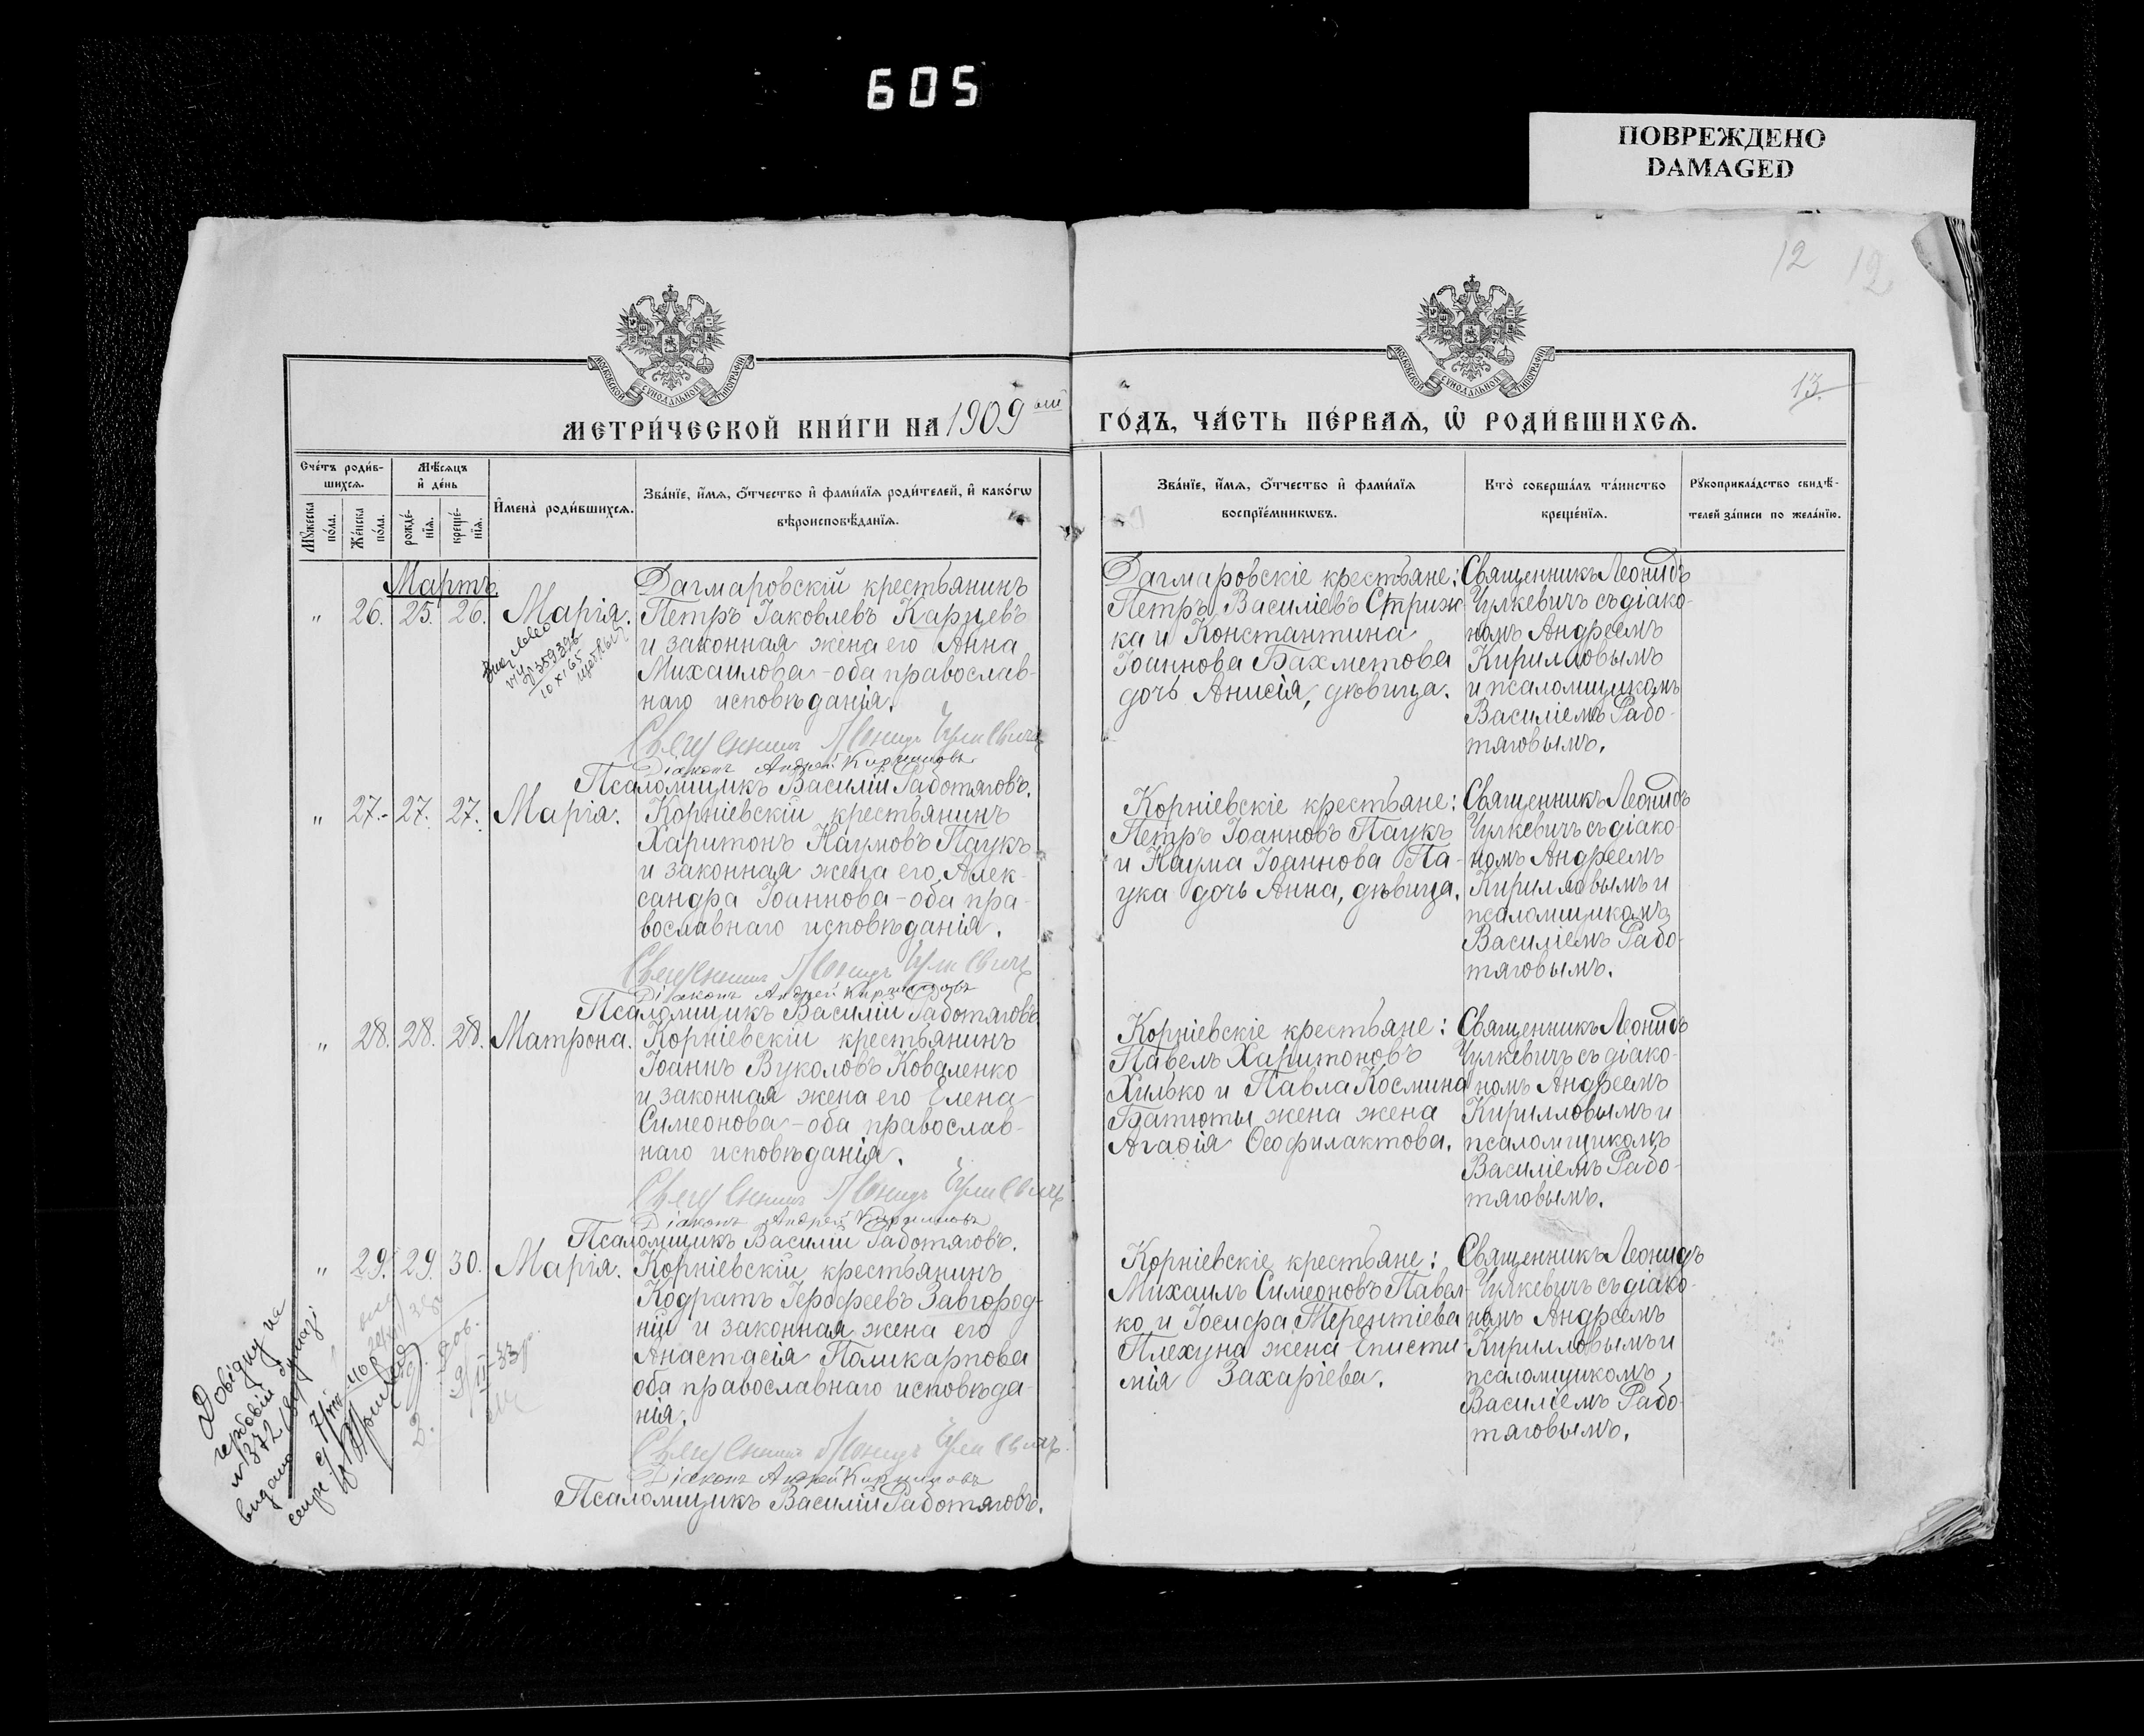 605
ПОВРЕЖДЕНО
DAMAGED
12 12
13
МОСКОВСКОЙ СѴНОДАЛЬНОЙ ТИПОГРАФІИ
МОСКОВСКОЙ СѴНОДАЛЬНОЙ ТИПОГРАФІИ
МЕТРИ́ЧЕСКОЙ КНИ́ГИ НА 1909 ый
ГО́ДЪ, ЧА́СТЬ ПЕ́РВАѦ, Ѡ҆ РОДИ́ВШИХСѦ.
Сче́тъ роди́в-
шихсѧ.
Мꙋ́жеска по́ла.
Же́нска по́ла.
Мѣ́сѧцъ
и҆ де́нь
рожде́-нїѧ.
креще́-нїѧ.
И҆мена̀ роди́вшихсѧ.
Зва́нїе, и҆́мѧ, ѻ҆́тчество и҆ фами́лїѧ роди́телей, и҆ како́гѡ
вѣроисповѣ́данїѧ.
Зва́нїе, и҆́мѧ, ѻ҆́тчество и҆ фами́лїѧ
воспрїе́мникѡвъ.
Кто̀ соверша́лъ та́инство
креще́нїѧ.
Рꙋкоприкла́дство свидѣ́-
телей за́писи по жела́нїю.
Мартъ.
" 26. 25. 26. Марія.
Дагмаровскій крестьянинъ
Петръ Іаковлевъ Карцевъ
и законная жена его Анна
Михаилова - оба православ-
наго исповѣданія.
Священникъ Леонидъ Чулкевичъ
Діаконъ Андрей Кирилловъ
Псаломщикъ Василій Работяговъ.
Дагмаровскіе крестьяне:
Петръ Василіевъ Стриж-
ка и Константина
Іоаннова Бахметова
дочь Анисія, дѣвица.
Священникъ Леонидъ
Чулкевичъ съ діако-
номъ Андреемъ
Кирилловымъ
и псаломщикомъ
Василіемъ Рабо-
тяговымъ.
10 XI 65
" 27. 27. 27. Марія.
Корніевскій крестьянинъ
Харитонъ Наумовъ Паукъ
и законная жена его Алек-
сандра Іоаннова - оба пра-
вославнаго исповѣданія.
Священникъ Леонидъ Чулкевичъ
Діаконъ Андрей Кирилловъ
Псаломщикъ Василій Работяговъ.
Корніевскіе крестьяне:
Петръ Іоанновъ Паукъ
и Наума Іоаннова Па-
ука дочь Анна, дѣвица.
Священникъ Леонидъ
Чулкевичъ съ діако-
номъ Андреемъ
Кирилловымъ и
псаломщикомъ
Василіемъ Рабо-
тяговымъ.
" 28. 28. 28. Матрона.
Корніевскій крестьянинъ
Іоаннъ Вуколовъ Коваленко
и законная жена его Елена
Симеонова - оба православ-
наго исповѣданія.
Священникъ Леонидъ Чулкевичъ
Діаконъ Андрей Кирилловъ
Псаломщикъ Василій Работяговъ.
Корніевскіе крестьяне:
Павелъ Харитоновъ
Хилько и Павла Космина
Батюты жена жена
Агаѳія Ѳеофилактова.
Священникъ Леонидъ
Чулкевичъ съ діако-
номъ Андреемъ
Кирилловымъ и
псаломщикомъ
Василіемъ Рабо-
тяговымъ.
" 29. 29. 30. Марія.
Корніевскій крестьянинъ
Кодратъ Іероѳеевъ Завгород-
ній и законная жена его
Анастасія Поликарпова
оба православнаго исповѣда-
нія.
Священникъ Леонидъ Чулкевичъ
Діаконъ Андрей Кирилловъ
Псаломщикъ Василій Работяговъ.
Корніевскіе крестьяне:
Михаилъ Симеоновъ Павел-
ко и Іосифа Терентіева
Плехуна жена Еписти-
мія Захаріева.
Священникъ Леонидъ
Чулкевичъ съ діако-
номъ Андреемъ
Кирилловымъ и
псаломщикомъ
Василіемъ Рабо-
тяговымъ.
Довідку на
гербовій бумазі
видано